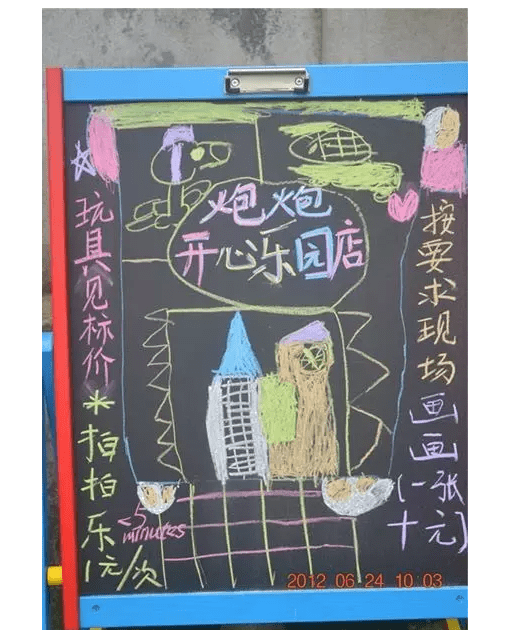 炮炮
开心乐园店
玩具见标价
*拍拍乐
<5 minutes
1元/次
按要求现场画画(一张十元)
2012 06 24 10:03